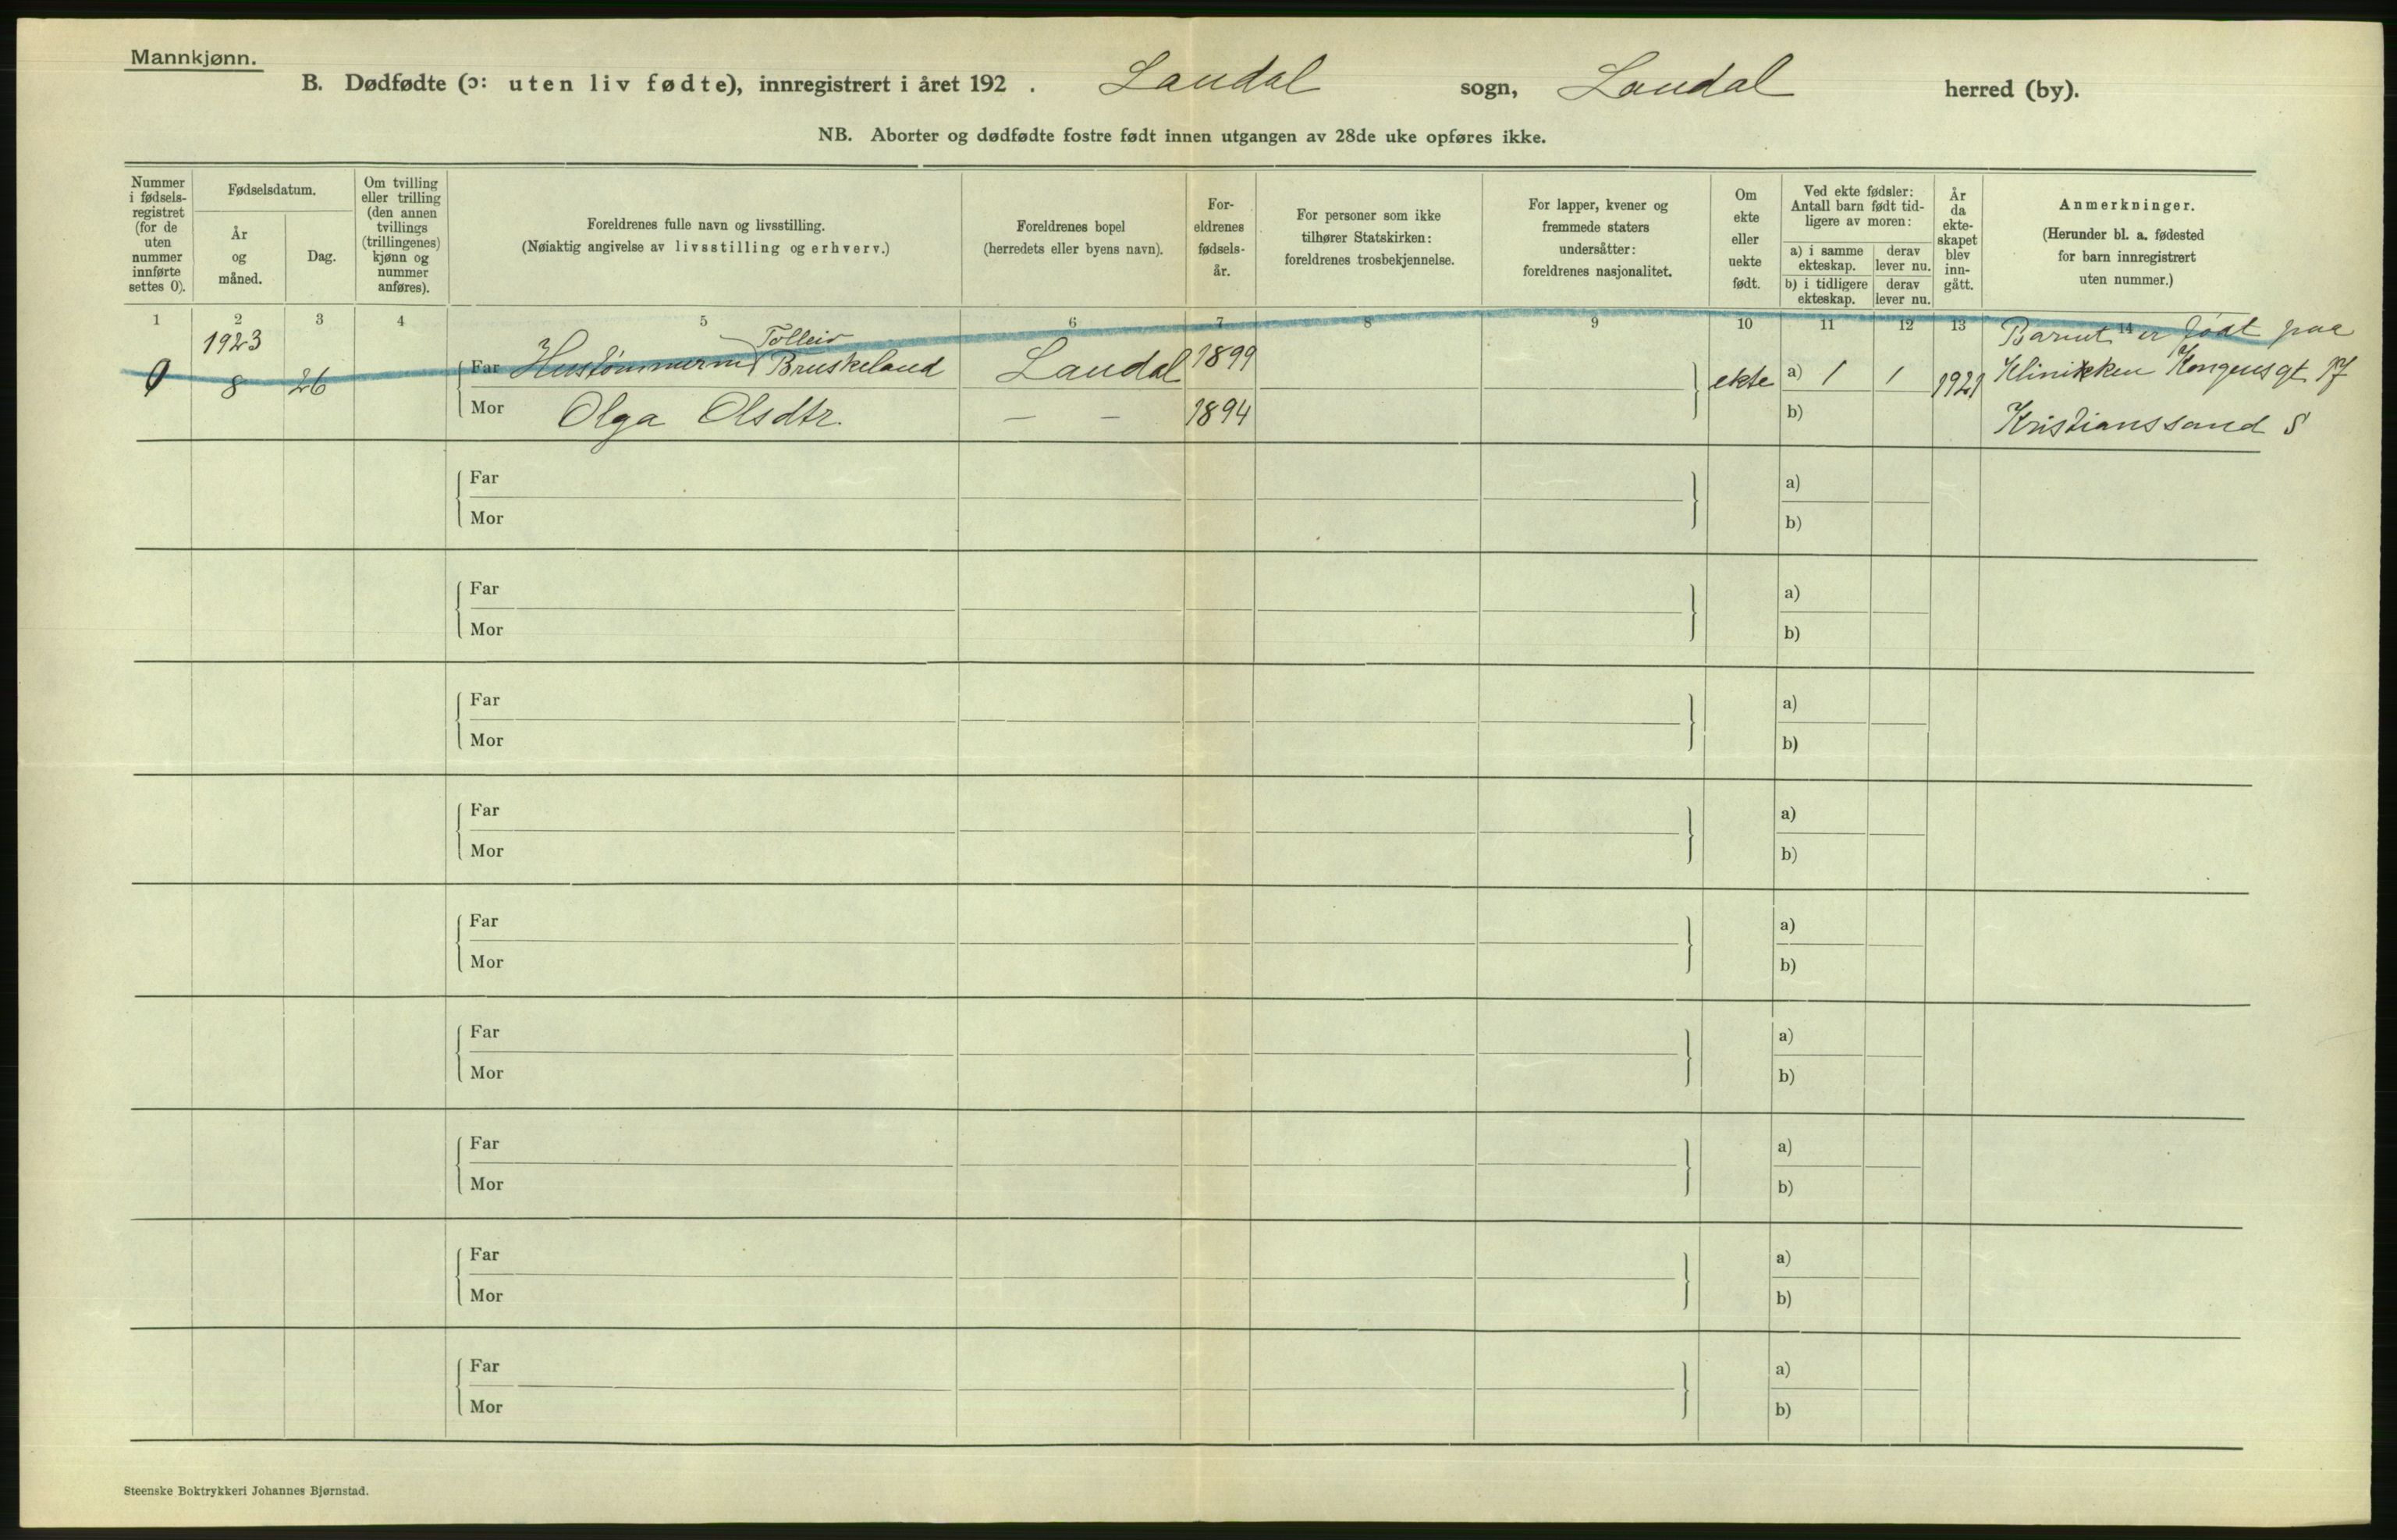 Mannkjønn.
B. Dødfødte (ɔ: uten liv fødte), innregistrert i året 192 . Laudal sogn, Laudal herred (by).
NB. Aborter og dødfødte fostre født innen utgangen av 28de uke opføres ikke.
Nummer i fødsels-registret (for de uten nummer innførte settes 0).
Fødselsdatum.
År og måned.
Dag.
Om tvilling eller trilling (den annen tvillings (trillingenes) kjønn og nummer anføres).
Foreldrenes fulle navn og livsstilling.
(Nøiaktig angivelse av livsstilling og erhverv.)
Foreldrenes bopel
(herredets eller byens navn).
For-eldrenes fødsels-år.
For personer som ikke tilhører Statskirken: foreldrenes trosbekjennelse.
For lapper, kvener og fremmede staters undersåtter: foreldrenes nasjonalitet.
Om ekte eller uekte født.
Ved ekte fødsler: Antall barn født tid-ligere av moren:
a) i samme ekteskap.
derav lever nu.
b) i tidligere ekteskap.
derav lever nu.
År da ekte-skapet blev inn-gått.
Anmerkninger.
(Herunder bl. a. fødested for barn innregistrert uten nummer.)
1 2 3 4 5 6 7 8 9 10 11 12 13 14
1923 Tolleiv Barnet er født paa
0 8 26 Far Hustømmerm Bruskeland Laudal 1899 ekte a) 1 1 1921 Klinikken Kongensgt 17
Mor Olga Olsdtr. — — 1894 b) Kristianssand S
Far a)
Mor b)
Far a)
Mor b)
Far a)
Mor b)
Far a)
Mor b)
Far a)
Mor b)
Far a)
Mor b)
Far a)
Mor b)
Far a)
Mor b)
Far a)
Mor b)
Steenske Boktrykkeri Johannes Bjørnstad.